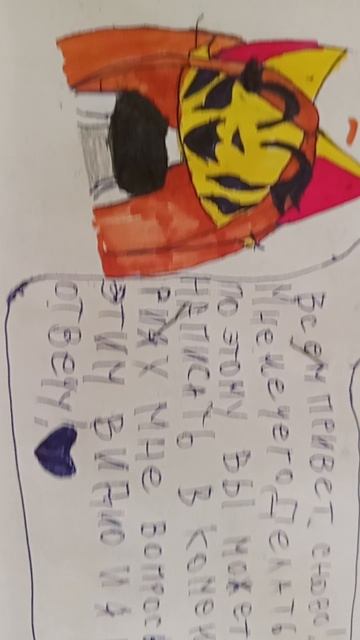 Всем привет, снова!
Мне нечего делать
поэтому вы может
написать в комен
риях мне вопросы
этим видио и я
отвечу,